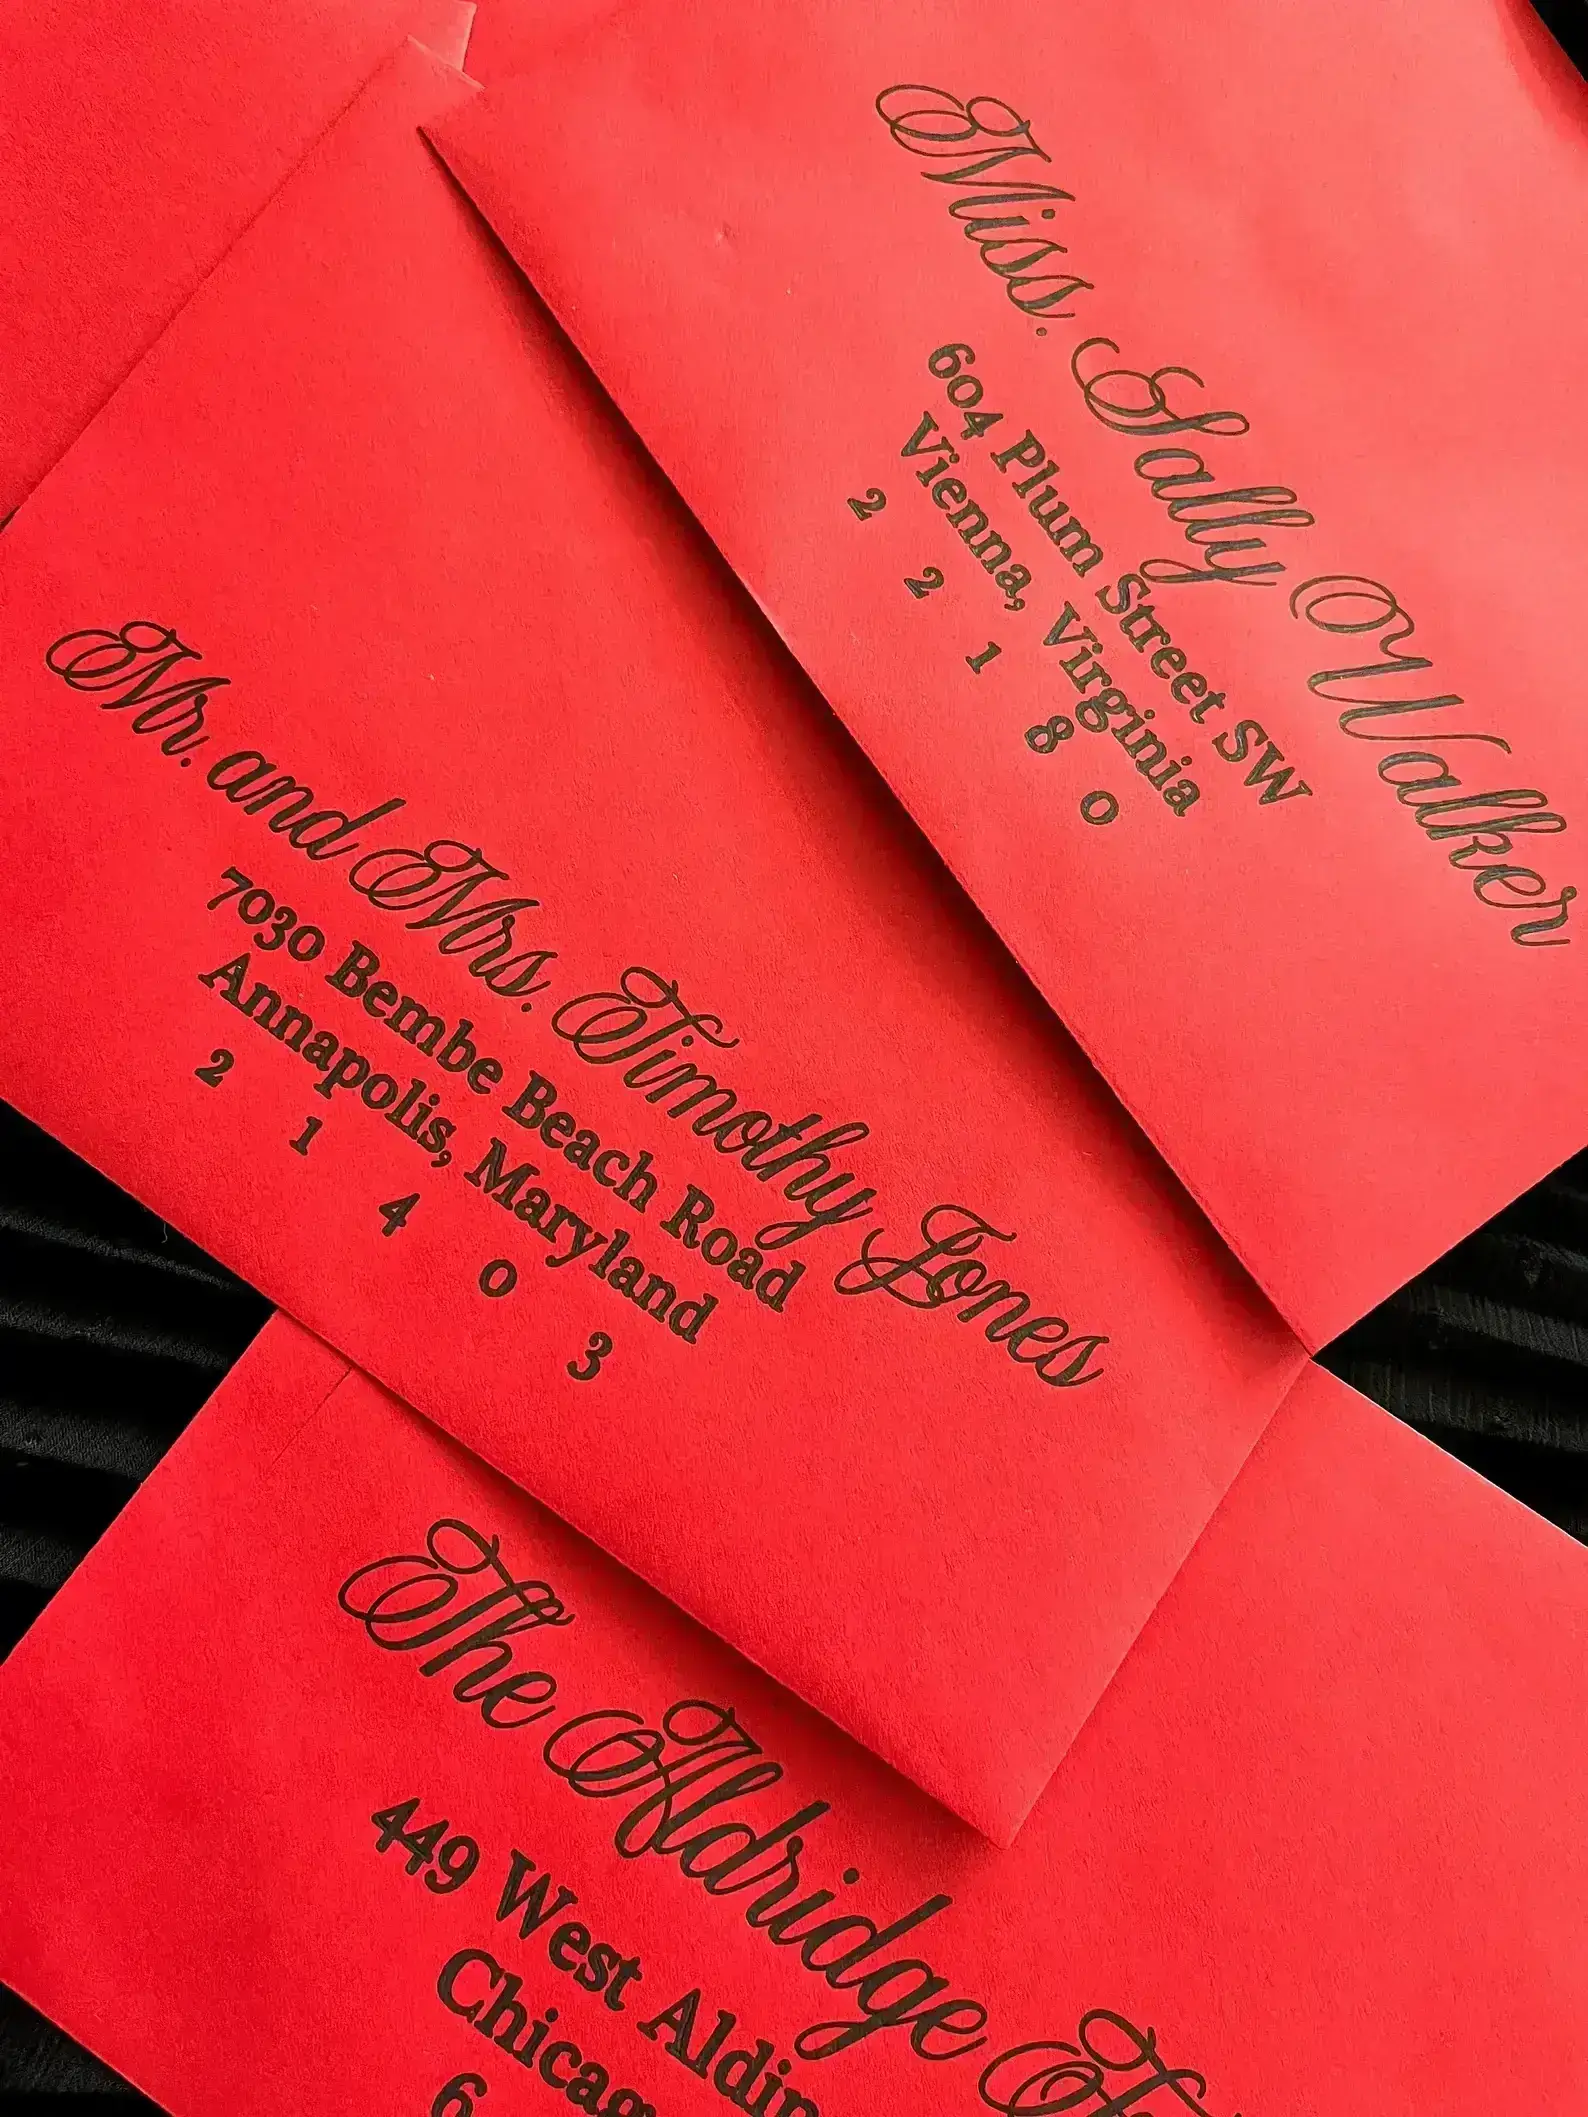 Miss. Sally Walker
604 Plum Street SW
Vienna, Virginia
2 2 1 8 0
Mr. and Mrs. Timothy Jones
7030 Bembe Beach Road
Annapolis, Maryland
2 1 4 0 3
The Aldridge
449 West
Chicag
6